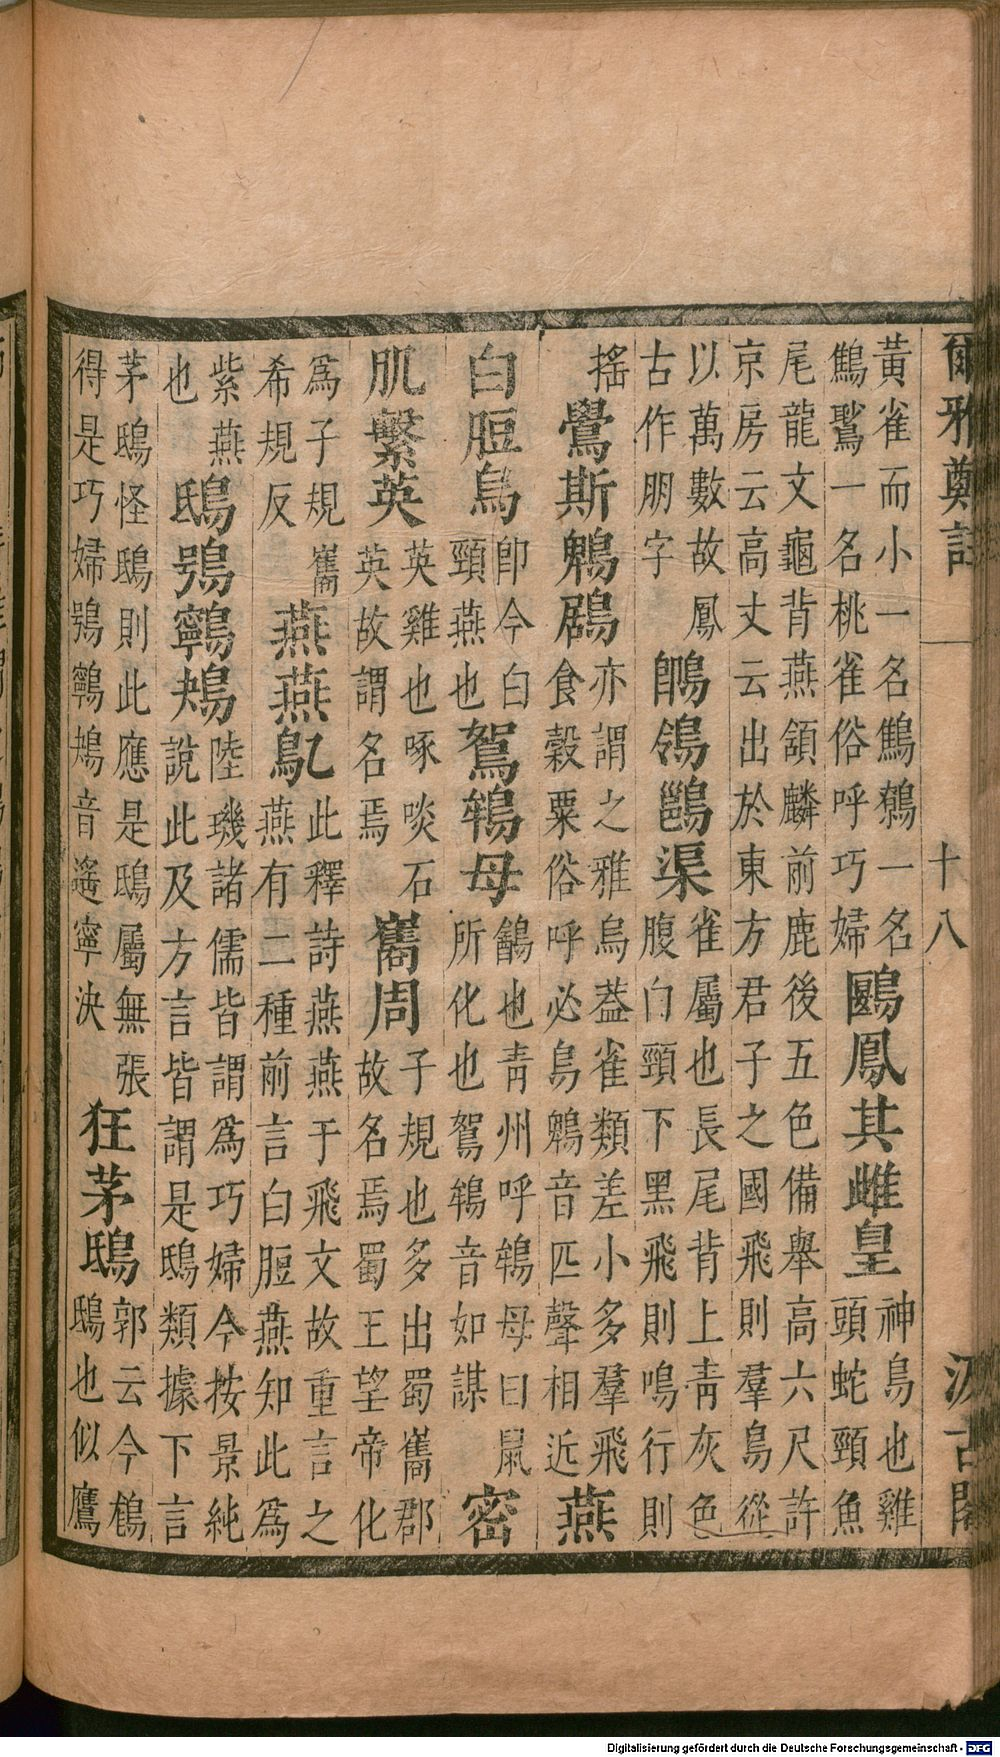 爾雅鄭註 十八 汲古閣
黃雀而小一名鷦鷯一名
鷦一名桃雀俗呼巧婦
鶠鳳其雌皇
神鳥也雞
頭蛇頸魚
尾龍文龜背燕頷麟前鹿後五色備舉高六尺許
京房云高丈云出於東方君子之國飛則羣鳥從
以萬數故鳳
古作朋字
䳭鴒渠
雀屬也長尾背上靑灰色
腹门頸下黑飛則鳴行則
搖
鸒斯鵯鶋
亦謂之雅烏葢雀類差小多羣飛
食穀粟俗呼必鳥鵯音匹聲相近
燕
白脰烏
卽今白
頸燕也
鴽鴾母
鶕也靑州呼鴾母曰鼠
所化也鴽鴾音如謀
密
肌繫英
英雞也啄啖石
英故謂名焉
巂周
子規也多出蜀巂郡
故名焉蜀王望帝化
爲子規巂
希規反
燕燕鳦
此釋詩燕燕于飛文故重言之
燕有二種前言白脰燕知此爲
紫燕
也
鴟鴞鸋鴂
陸璣諸儒皆謂爲巧婦今按景純
說此及方言皆謂是鴟類據下言
茅鴟怪鴟則此應是鴟屬無張
得是巧婦鴞鸋鴂音遙寧決
狂茅鴟
郭云今
鴟也似鷹
Digitalisierung gefördert durch die Deutsche Forschungsgemeinschaft - DFG